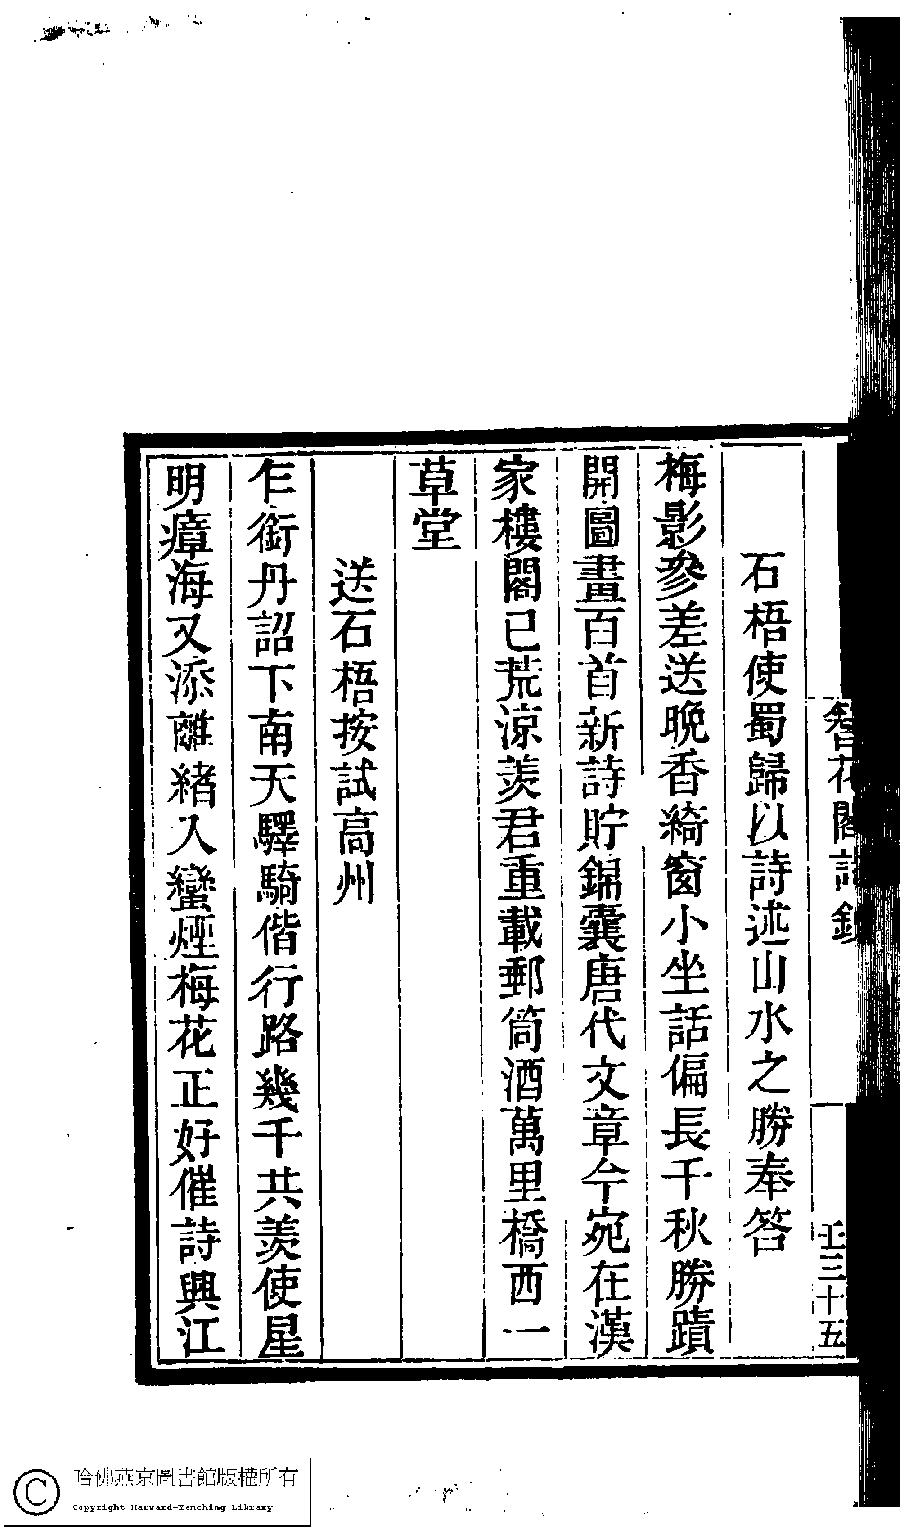 石梧使蜀歸以詩述山水之勝奉答
梅影參差送晚香綺窗小坐話偏長千秋勝蹟
開圖畫百首新詩貯錦囊唐代文章今宛在漢
家樓閣已荒涼羨君重載郵筒酒萬里橋西一
草堂
送石梧按試高州
乍銜丹詔下南天驛騎偕行路幾千共羨使星
明瘴海又添離緒入蠻煙梅花正好催詩興江
花閣詩鈔
三十五
哈佛燕京圖書館版權所有
Copyright Harvard-Yenching Library